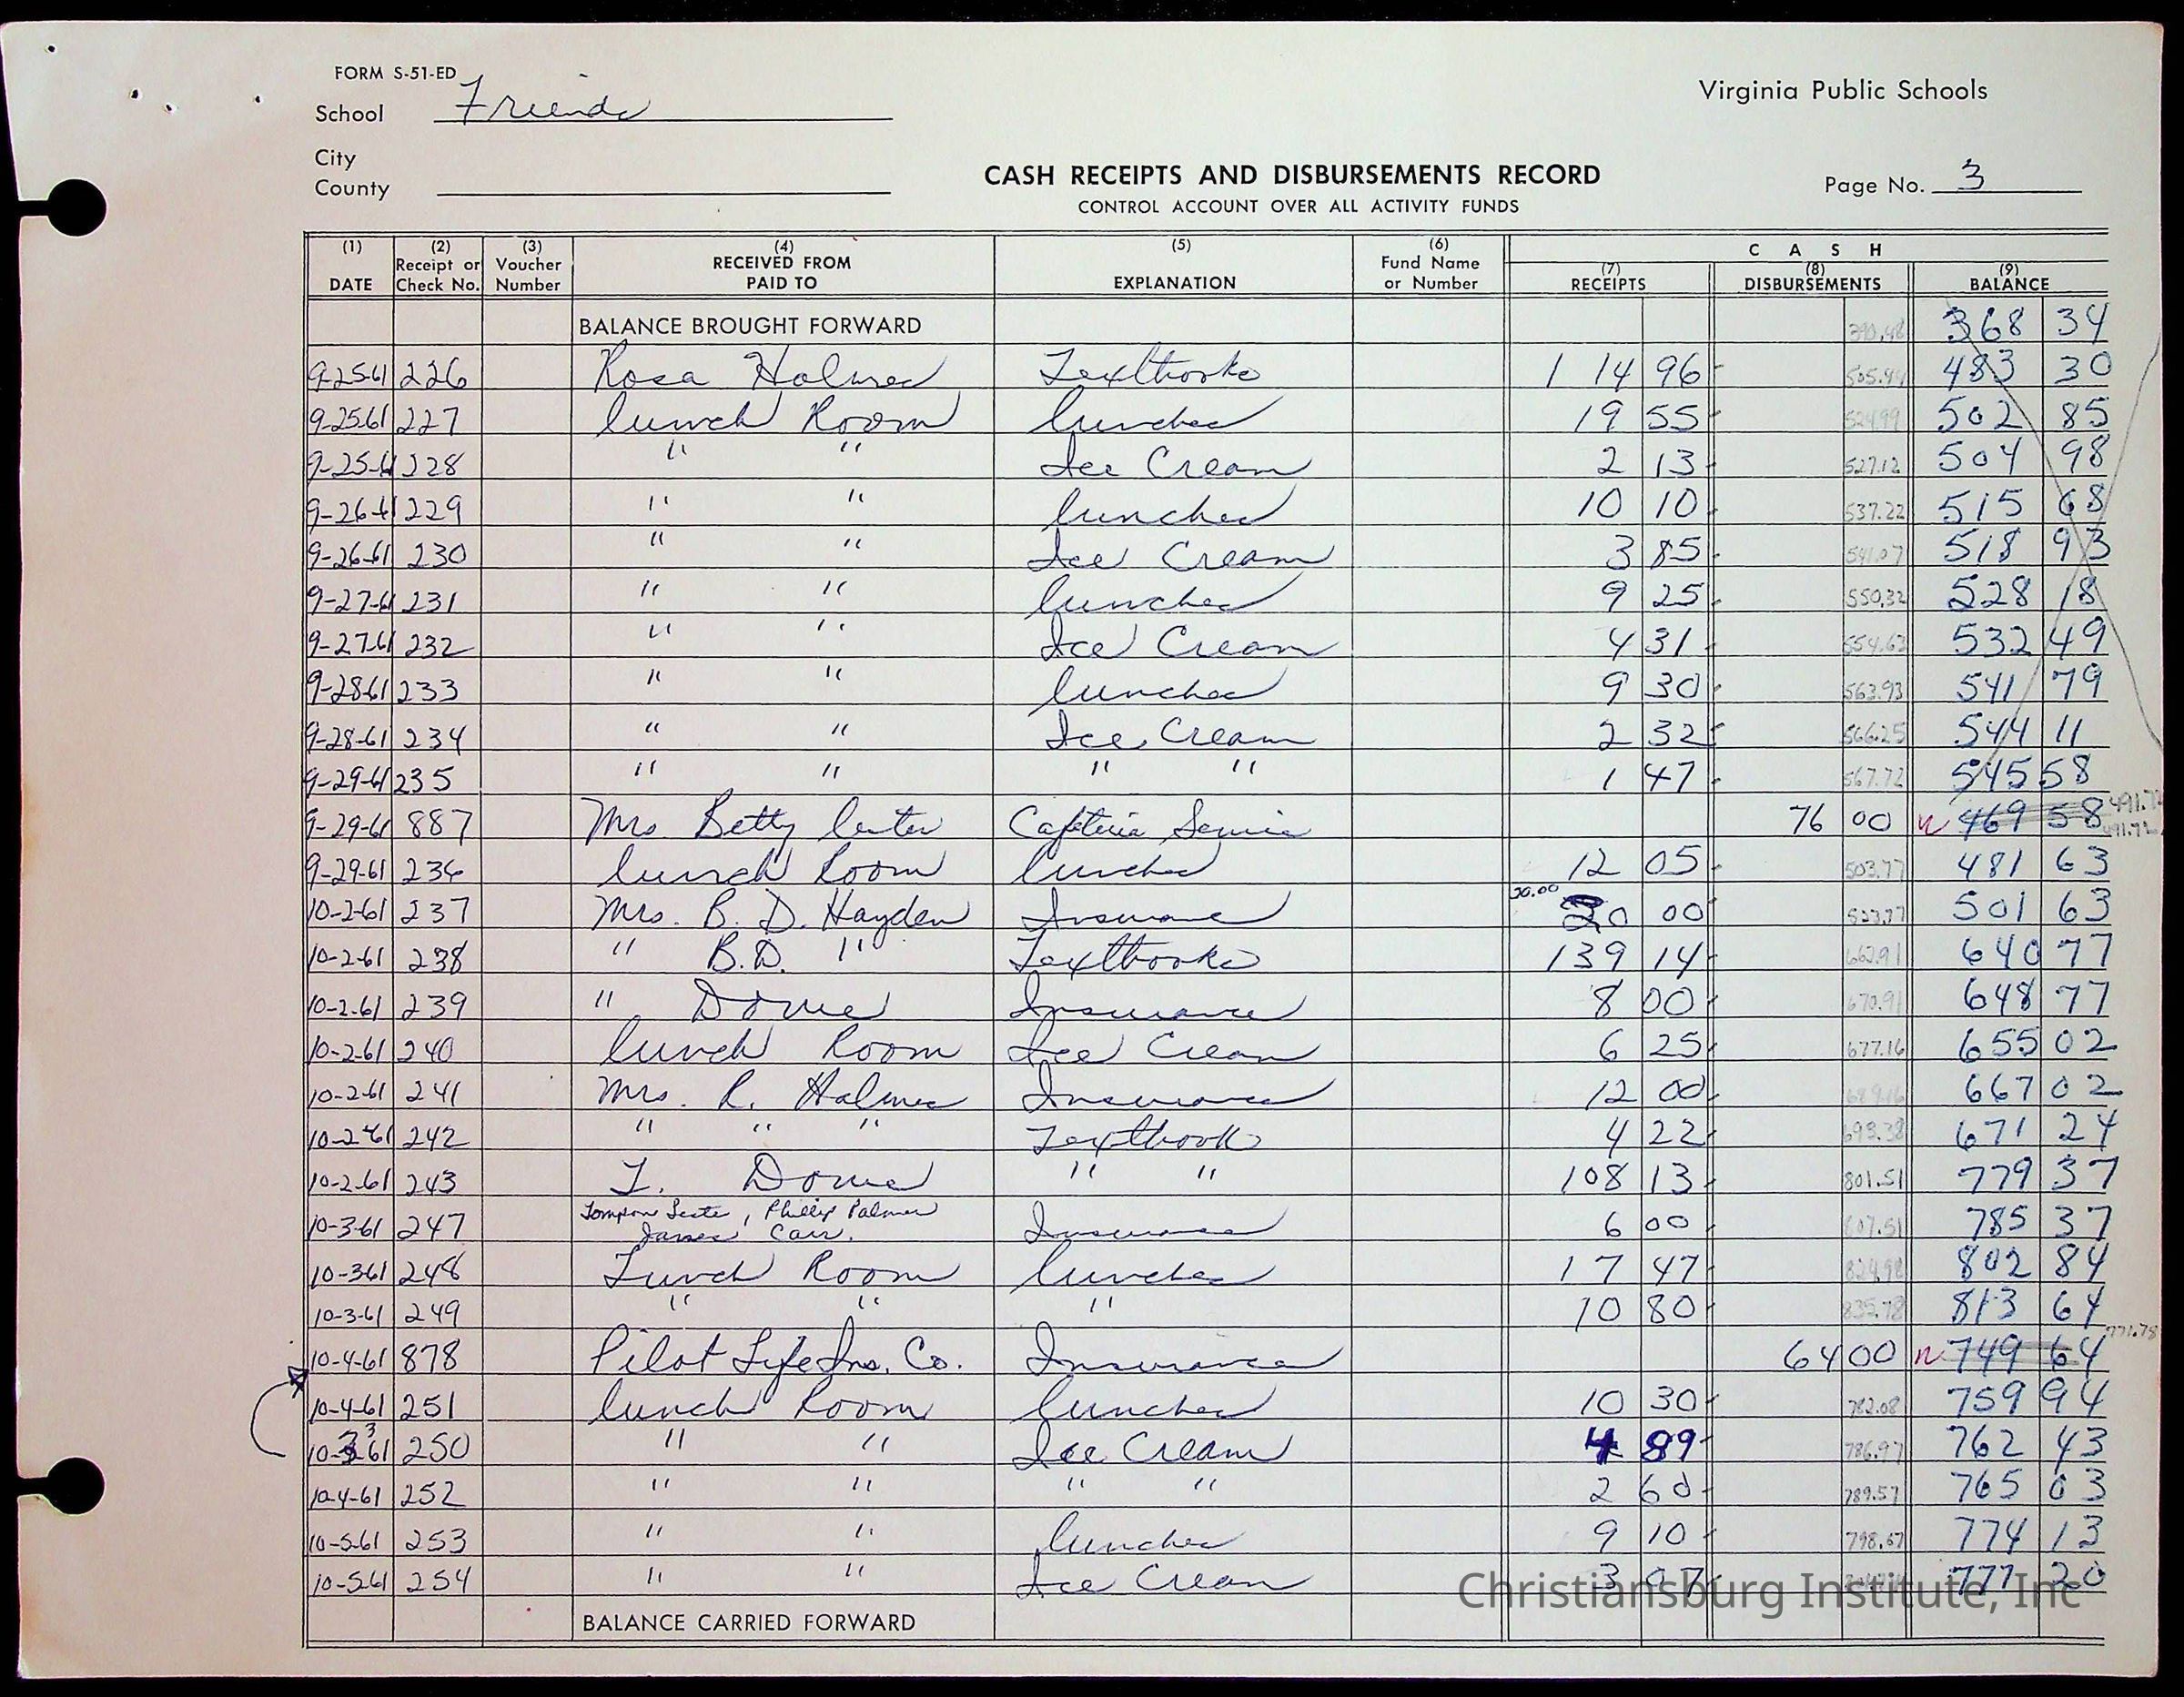 FORM S-51-ED
School Friends
Virginia Public Schools
City
County
CASH RECEIPTS AND DISBURSEMENTS RECORD
Page No. 3
CONTROL ACCOUNT OVER ALL ACTIVITY FUNDS
(1) DATE (2) Receipt or Check No. (3) Voucher Number (4) RECEIVED FROM PAID TO (5) EXPLANATION (6) Fund Name or Number CASH (7) RECEIPTS (8) DISBURSEMENTS (9) BALANCE
BALANCE BROUGHT FORWARD 390.48 368 34
9-25-61 226 Rosa Holmes Textbooks 114 96 505.44 483 30
9-25-61 227 lunch Room lunches 19 55 524.99 502 85
9-25-61 228 " " Ice Cream 2 13 527.12 504 98
9-26-61 229 " " lunches 10 10 537.22 515 68
9-26-61 230 " " Ice Cream 3 85 541.07 518 93
9-27-61 231 " " lunches 9 25 550.32 528 18
9-27-61 232 " " Ice Cream 4 31 554.63 532 49
9-28-61 233 " " lunches 9 30 563.93 541 79
9-28-61 234 " " Ice Cream 2 32 566.25 544 11
9-29-61 235 " " " " 1 47 567.72 545 58
9-29-61 887 Mrs Betty Cafeteria 76 00 469 58 491.72 491.72
9-29-61 236 lunch Room lunches 12 05 503.77 481 63
10-2-61 237 Mrs. B. D. Hayden Insurance 20.00 20 00 523.77 501 63
10-2-61 238 " B.D. " Textbooks 139 14 662.91 640 77
10-2-61 239 " Dowe Insurance 8 00 670.91 648 77
10-2-61 240 lunch Room Ice Cream 6 25 677.16 655 02
10-2-61 241 Mrs. R. Holmes Insurance 12 00 689.16 667 02
10-2-61 242 " " " Textbooks 4 22 693.38 671 24
10-2-61 243 T. Dowe " " 108 13 801.51 779 37
10-3-61 247 Phillip Palmer
James Carr. Insurance 6 00 807.51 785 37
10-3-61 248 Lunch Room lunches 17 47 824.98 802 84
10-3-61 249 " " " 10 80 835.78 813 64
10-4-61 878 Pilot Life Ins. Co. Insurance 64 00 749 64 771.78
10-4-61 251 lunch Room lunches 10 30 782.08 759 94
10-3-61 250 " " Ice Cream 4 89 786.97 762 43
10-4-61 252 " " " " 2 60 789.57 765 03
10-5-61 253 " " lunches 9 10 798.67 774 13
10-5-61 254 " " Ice Cream 3 07 777 20
Christiansburg Institute, Inc
BALANCE CARRIED FORWARD